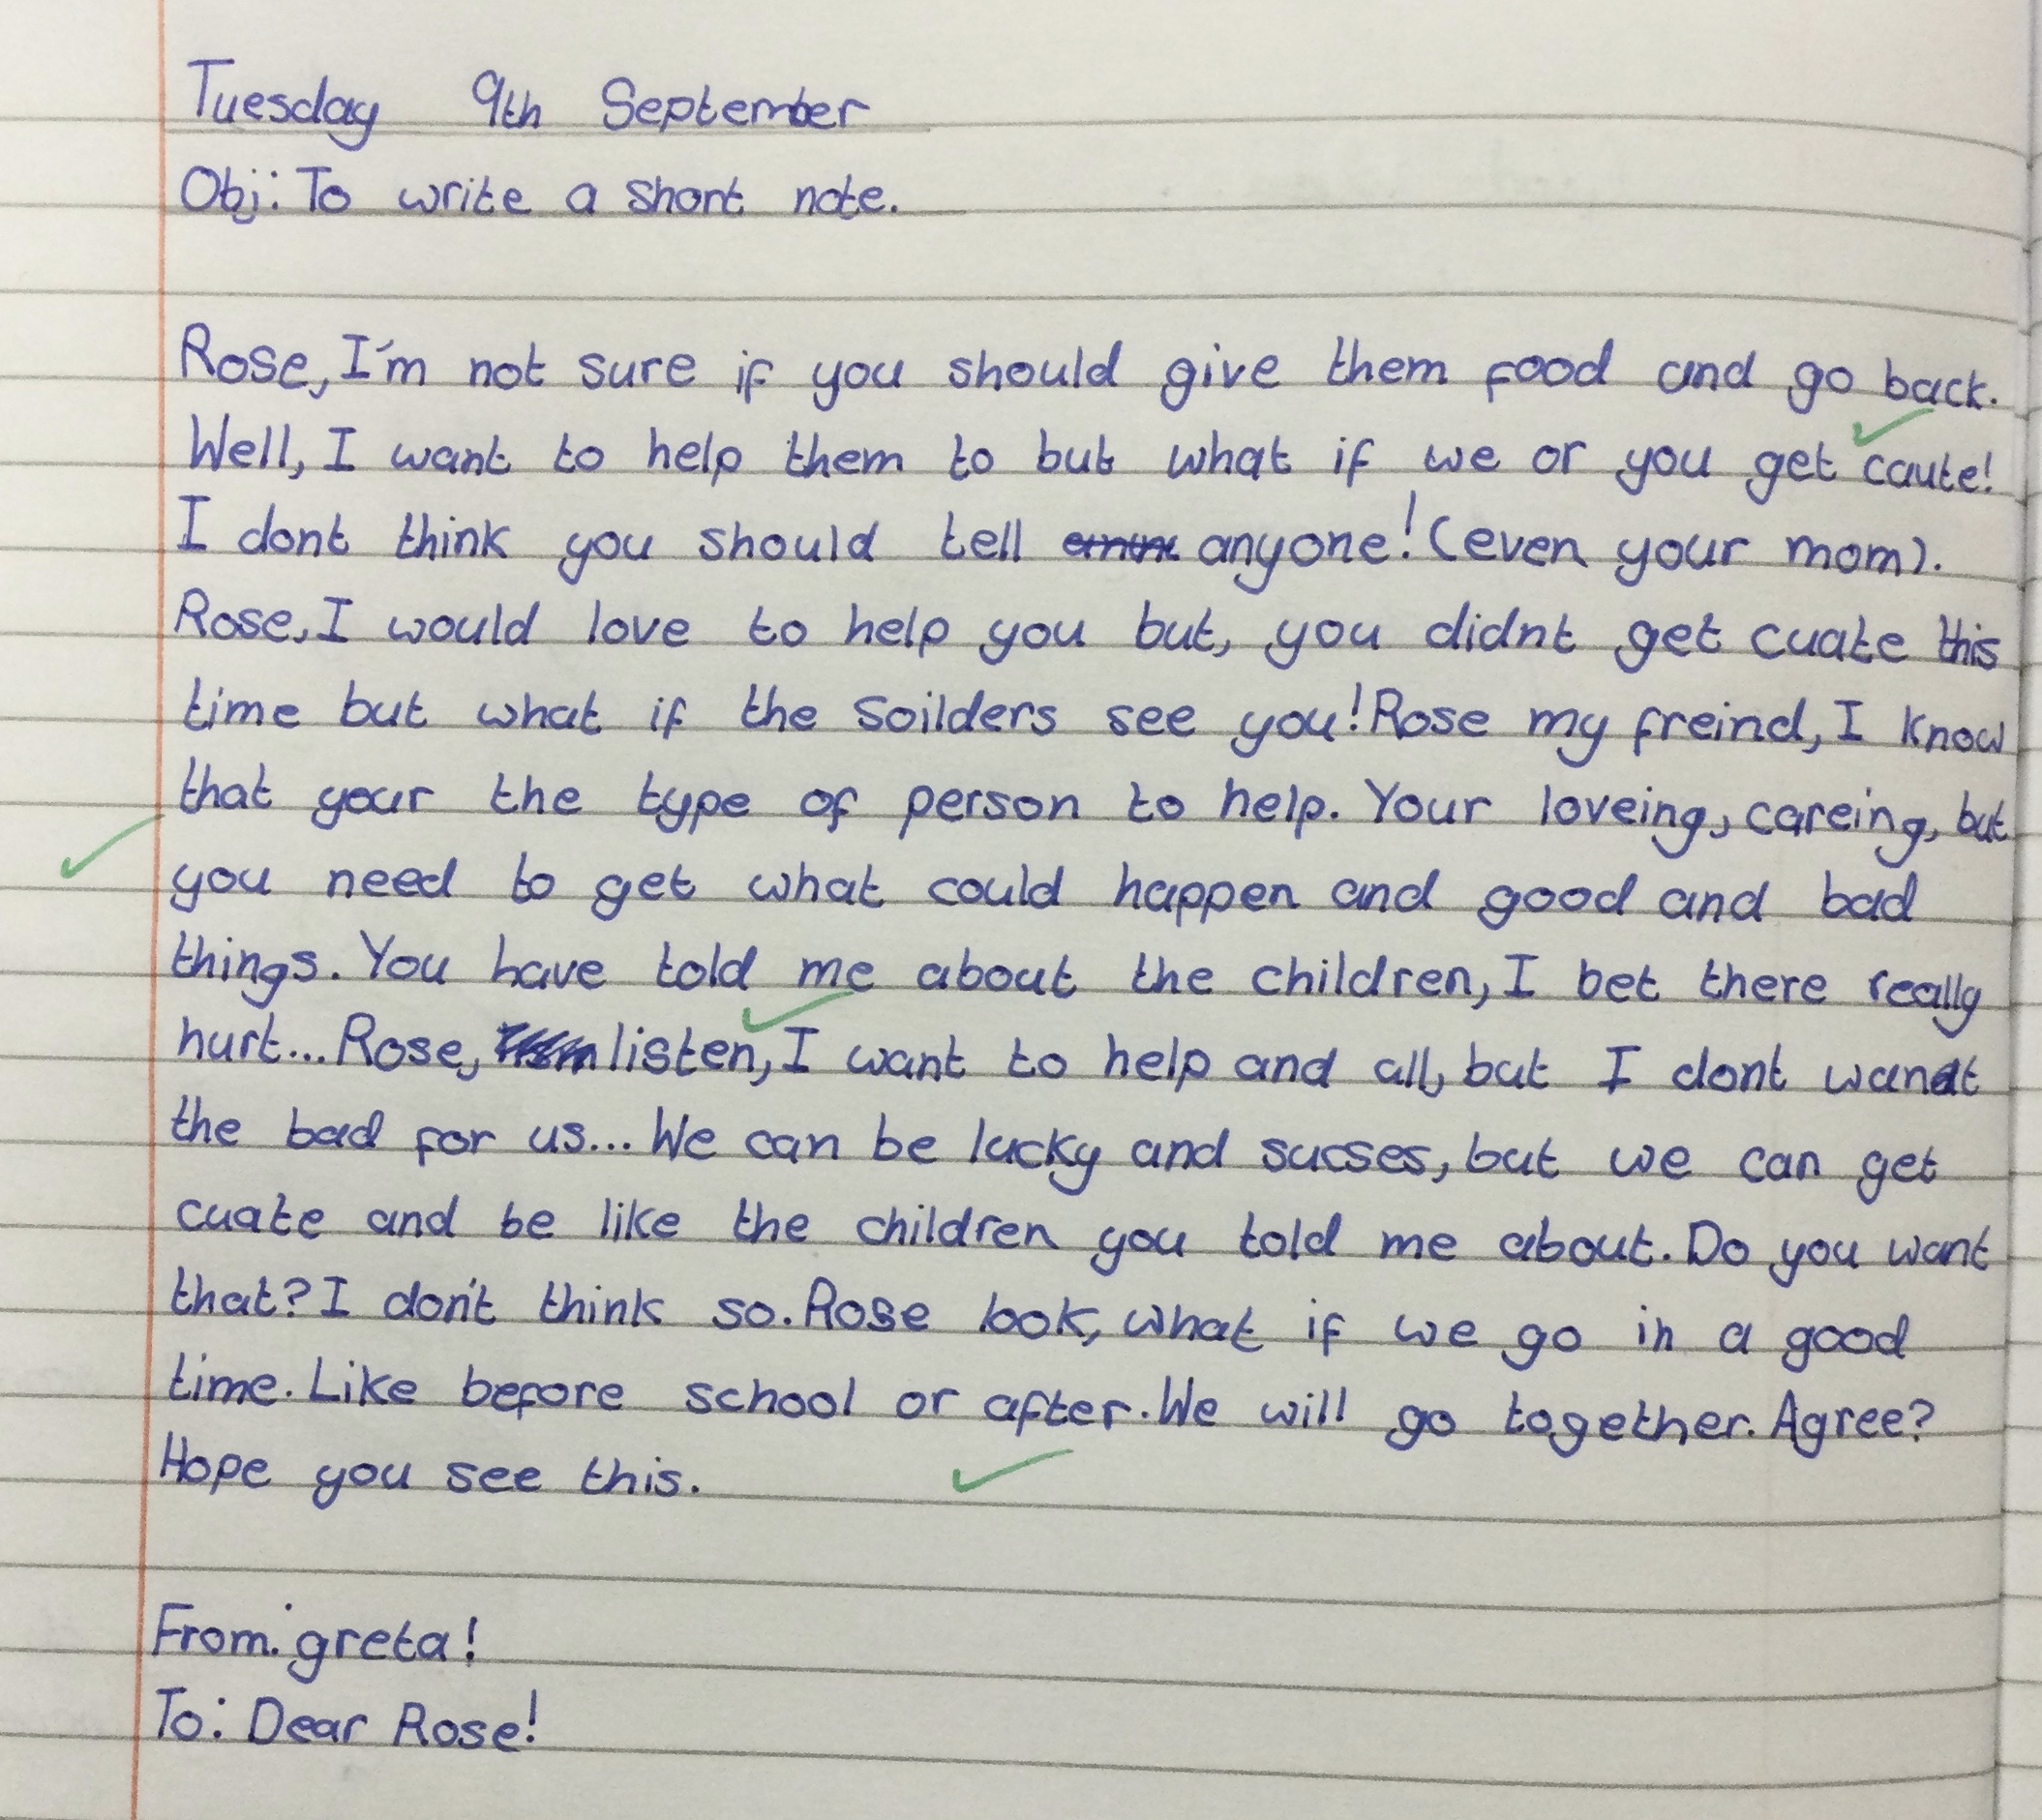 Tuesday 9th September
Obj: To write a short note.
Rose, I'm not sure if you should give them food and go back.
Well, I want to help them to but what if we or you get caute!
I dont think you should tell anyone! (even your mom).
Rose, I would love to help you but, you didnt get cuate this
time but what if the soilders see you! Rose my freind, I know
that your the type of person to help. Your loveing, careing, but
you need to get what could happen and good and bad
things. You have told me about the children, I bet there really
hurt... Rose, listen, I want to help and all, but I dont want
the bad for us... We can be lucky and sucses, but we can get
cuate and be like the children you told me about. Do you want
that? I don't think so. Rose look, what if we go in a good
time. Like before school or after. We will go together. Agree?
Hope you see this.
From: greta!
To: Dear Rose!